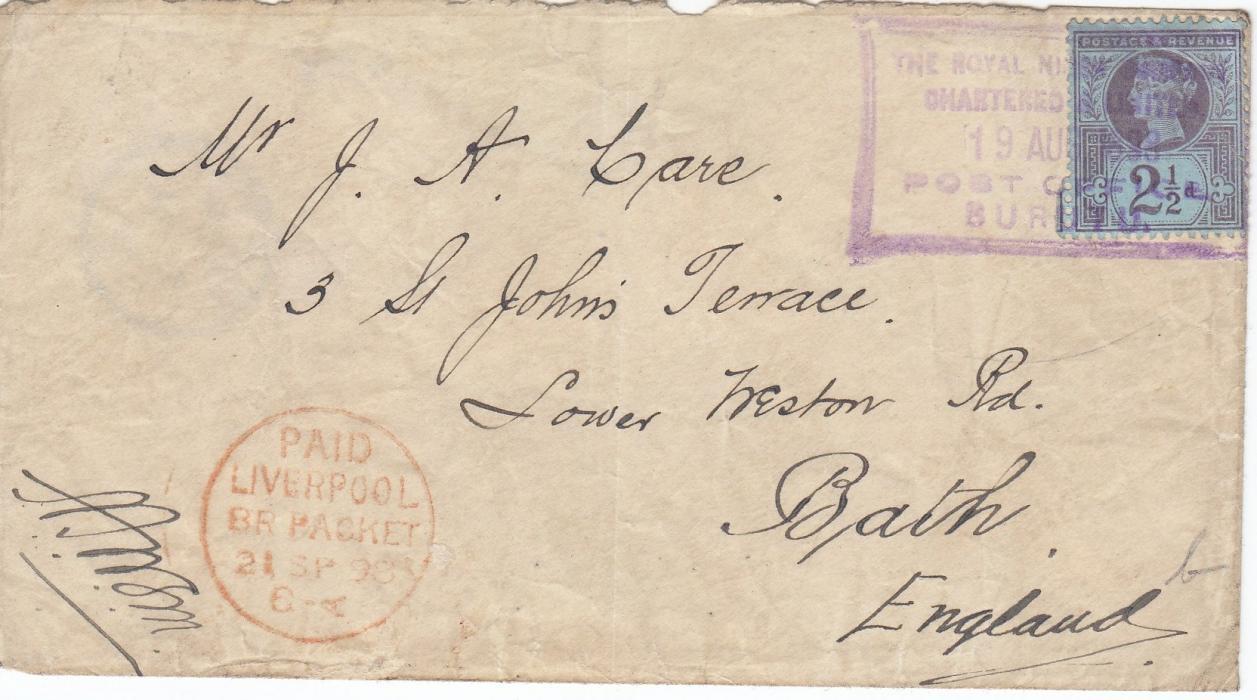 THE ROYAL
CHARTERED
19 AU
POST OFFICE
BURUTU
POSTAGE & REVENUE
2½d
Mr J. A. Care.
3 St John's Terrace.
Lower Weston Rd.
Bath.
England
PAID
LIVERPOOL
BR PACKET
21 SP 98